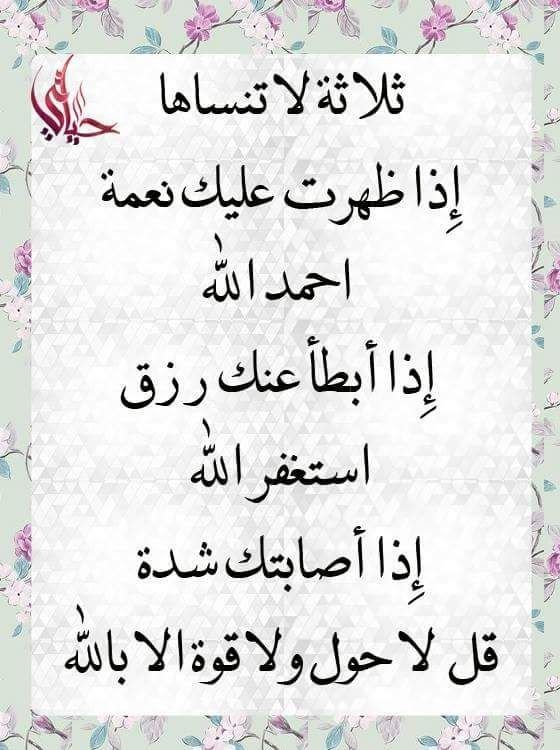 حياتي
ثلاثة لا تنساها
إذا ظهرت عليك نعمة
احمد الله
إذا أبطأ عنك رزق
استغفر الله
إذا أصابتك شدة
قل لا حول ولا قوة الا بالله